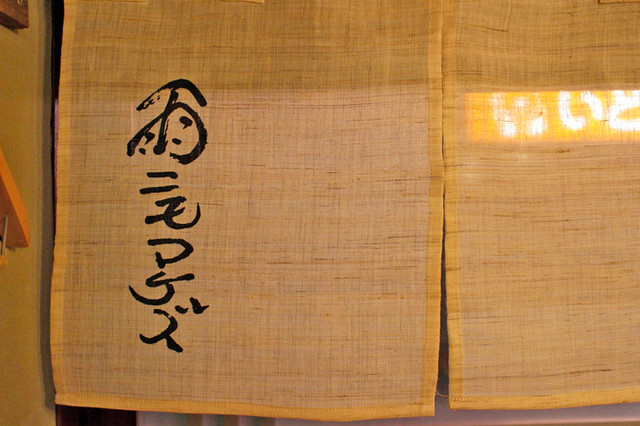 雨ニモマケズ